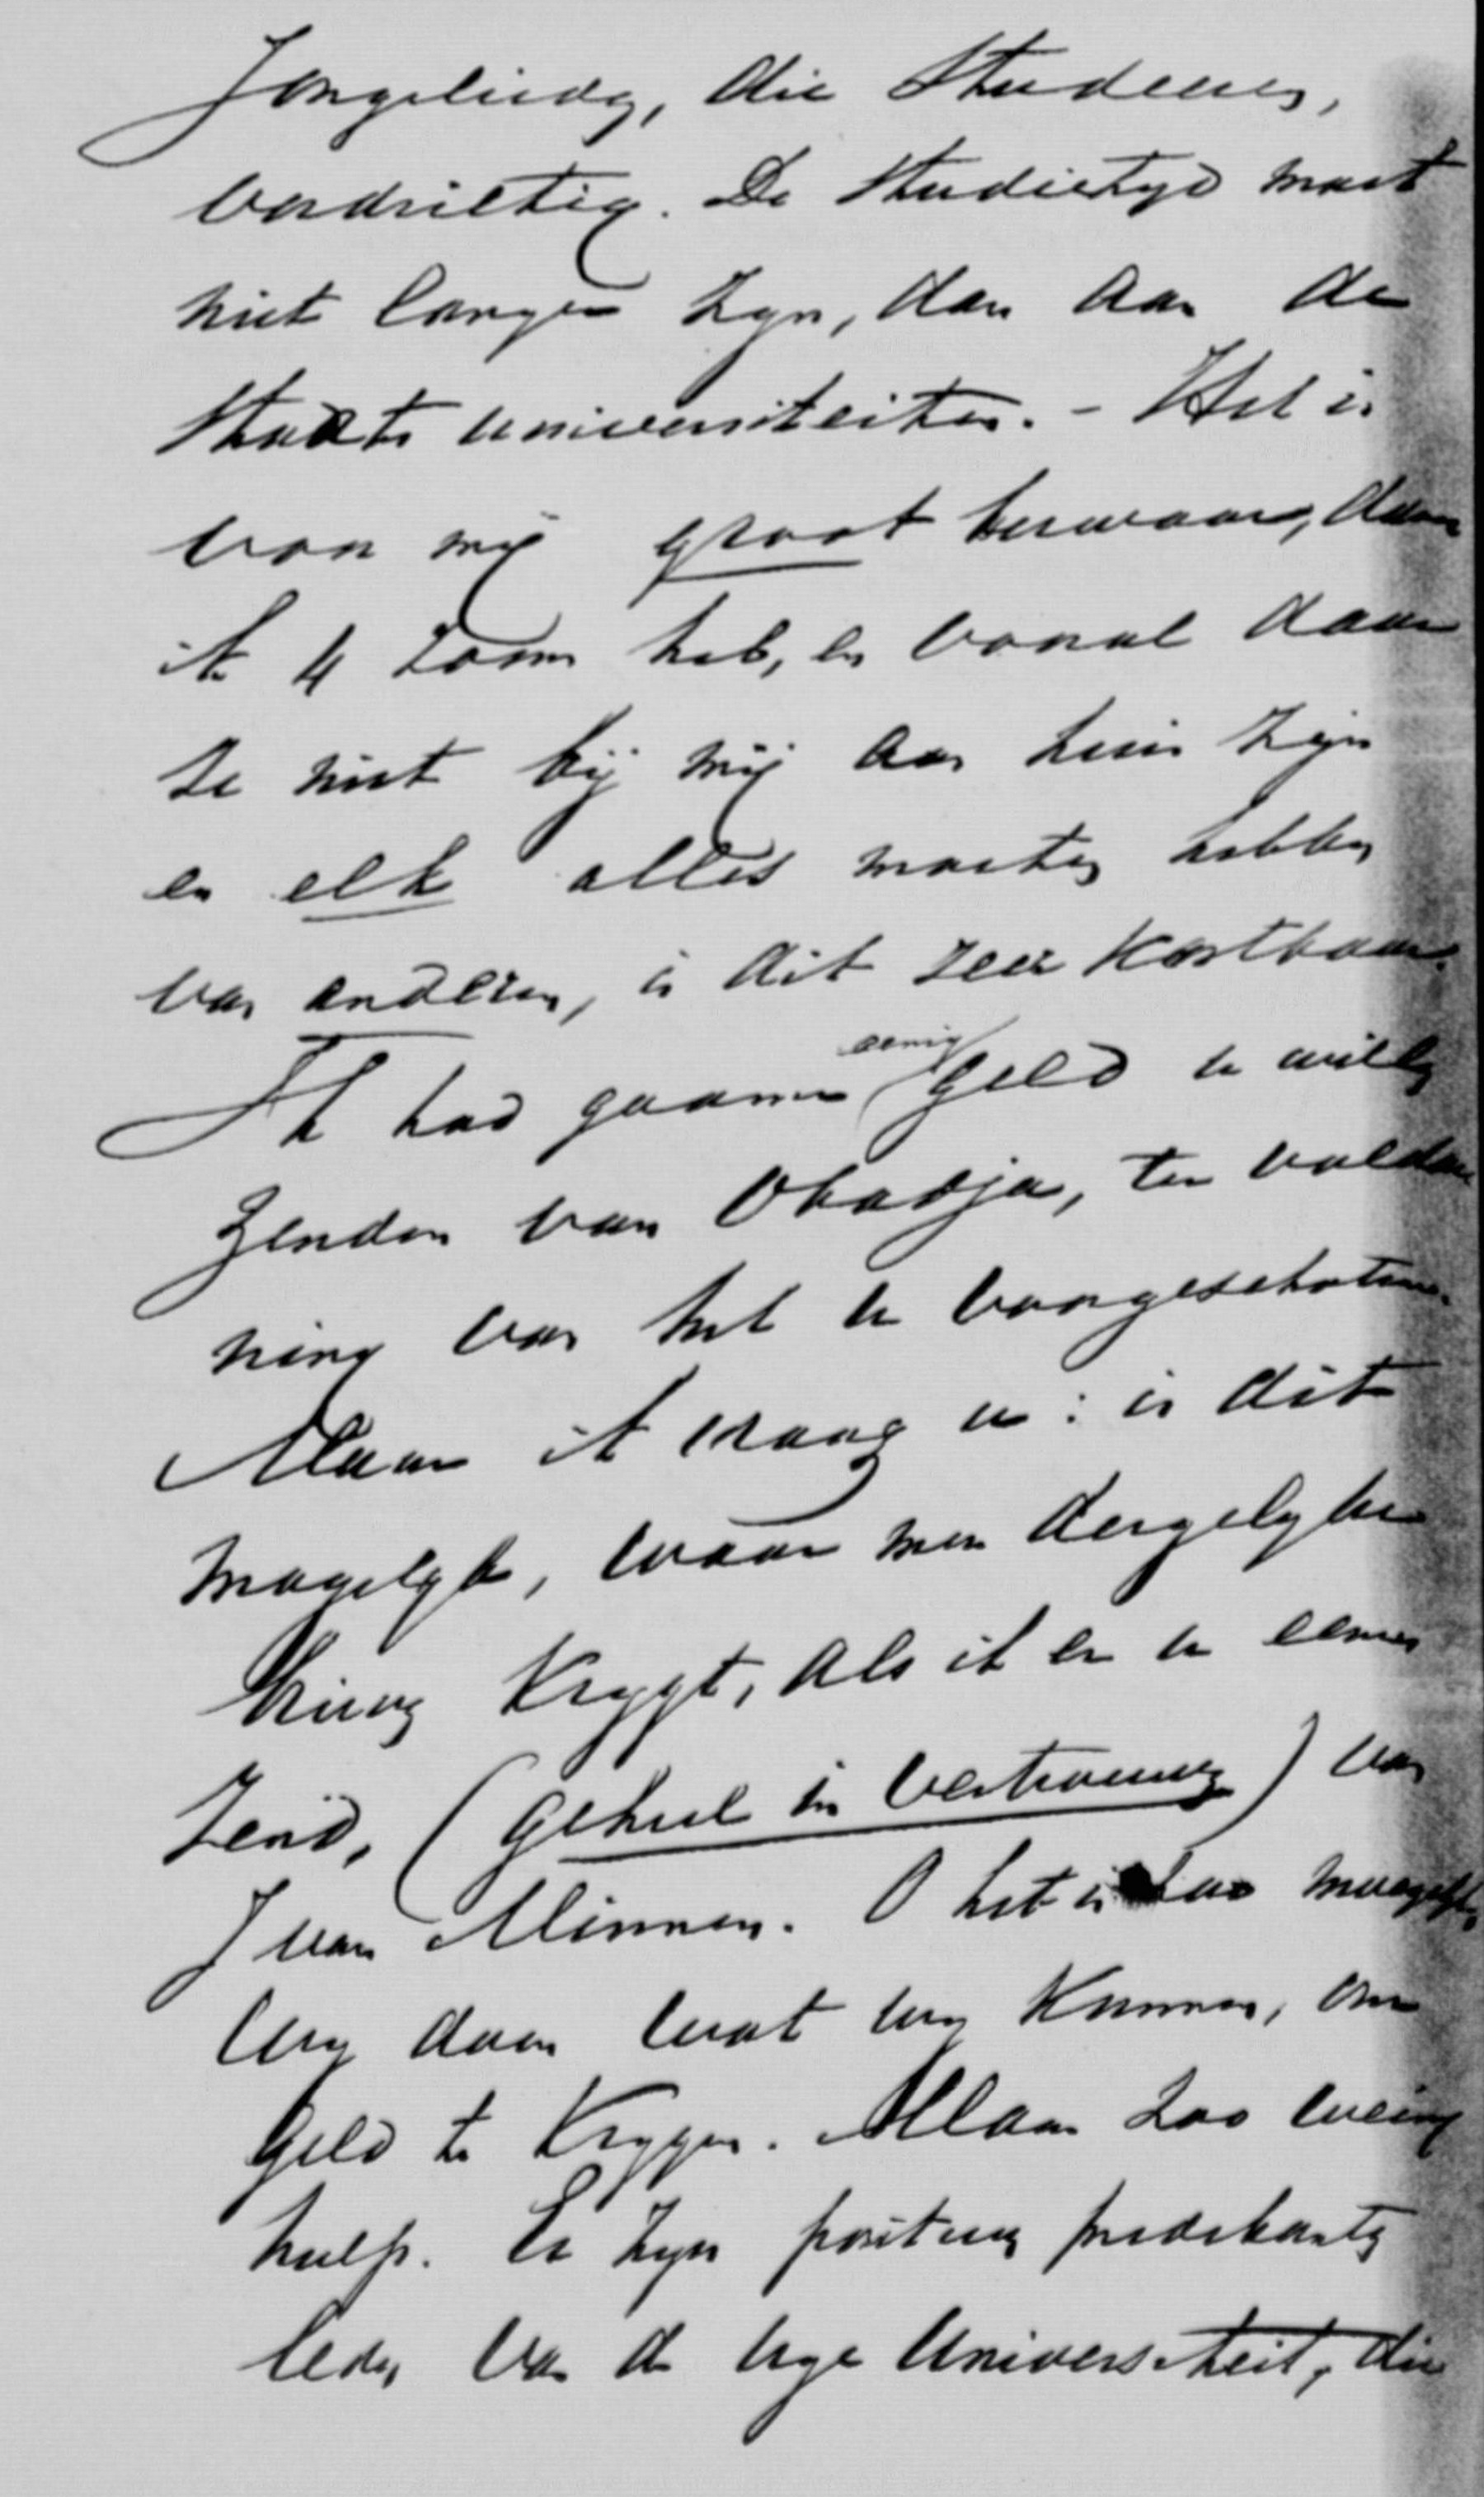 Jongelieden, die Studeeren,
verdrietig. De Studietyd moest
niet langer zyn, dan aan de
Staats universiteiten. - Het is
voor mij groot bezwaar, daar
ik 4 zoons heb, en vooral daar
ze niet bij mij aan huis zijn
en elk alles moeten hebben
van anderen, is dit zeer kostbaar.
Ik had gaarne eenig geld u willen
zenden van Obadja, ter voldoe
ning van het u voorgeschotene.
Maar ik vraag u: is dit
mogelyk, waar men dergelyke
krygt, als ik er u eenen
zend, (geheel in vertrouwen) van
J van Minnen. O het is zoo moeyelyk,
wy doen wat wy kunnen, om
geld te krygen. Maar zoo weinig
hulp. Er zyn predikanten
leden van de vrye Universiteit, die